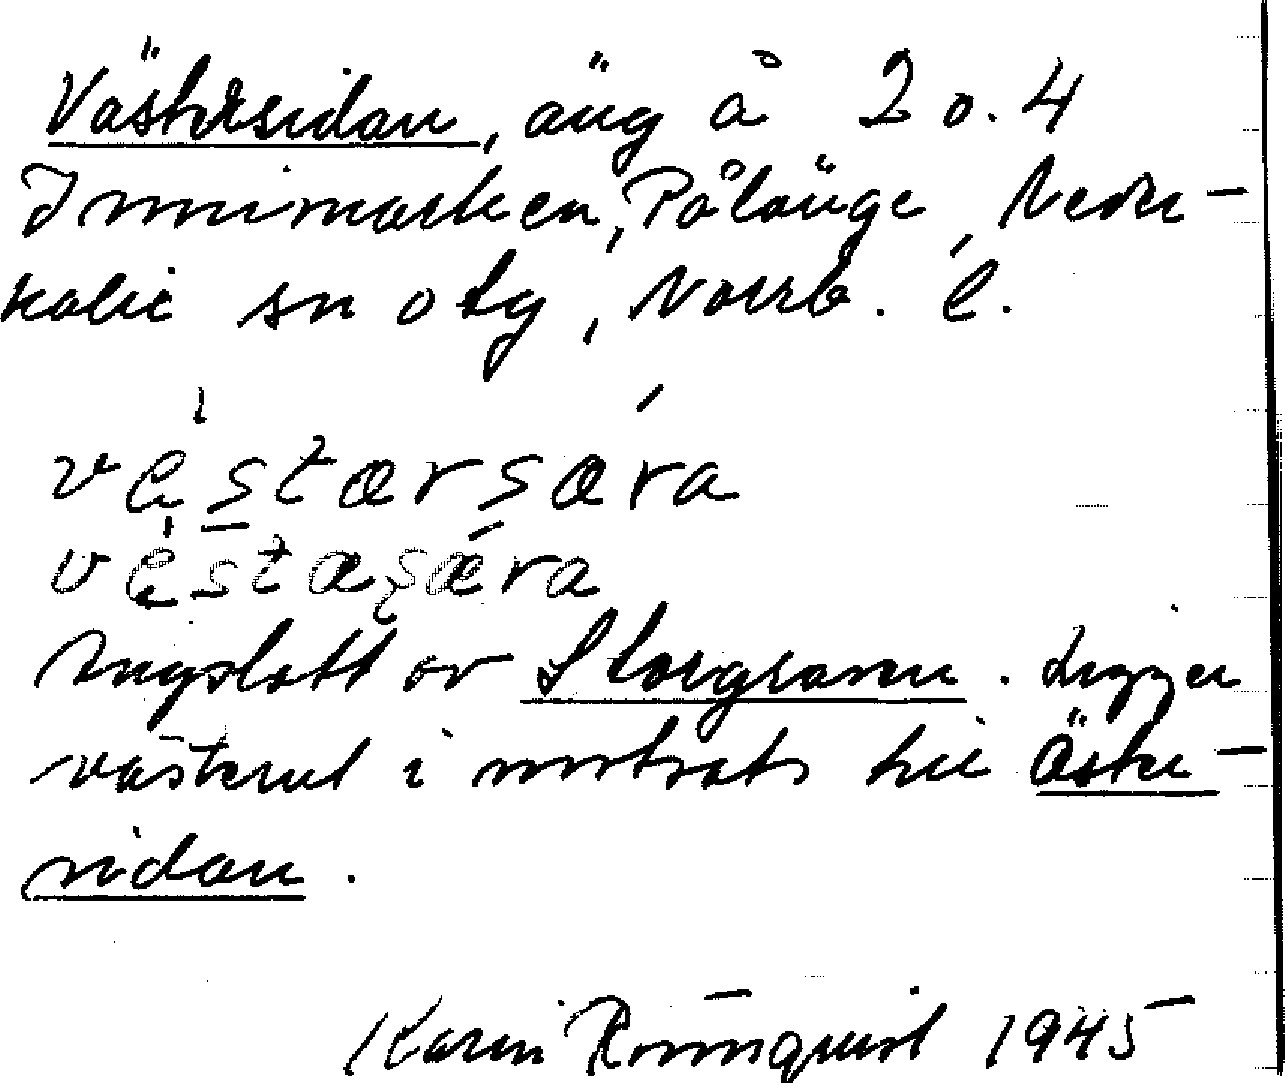 Västersidan, äng å 2 o. 4
Innimarken, Pålänge, Neder-
kalix sn o tg, Norrb. l.
véstærsæ̀ra
véstæsæ̀ra
Ängslott av Storgraven. Ligger
västerut i motsats till Öster-
sidan.
Karin Rönnquist 1945